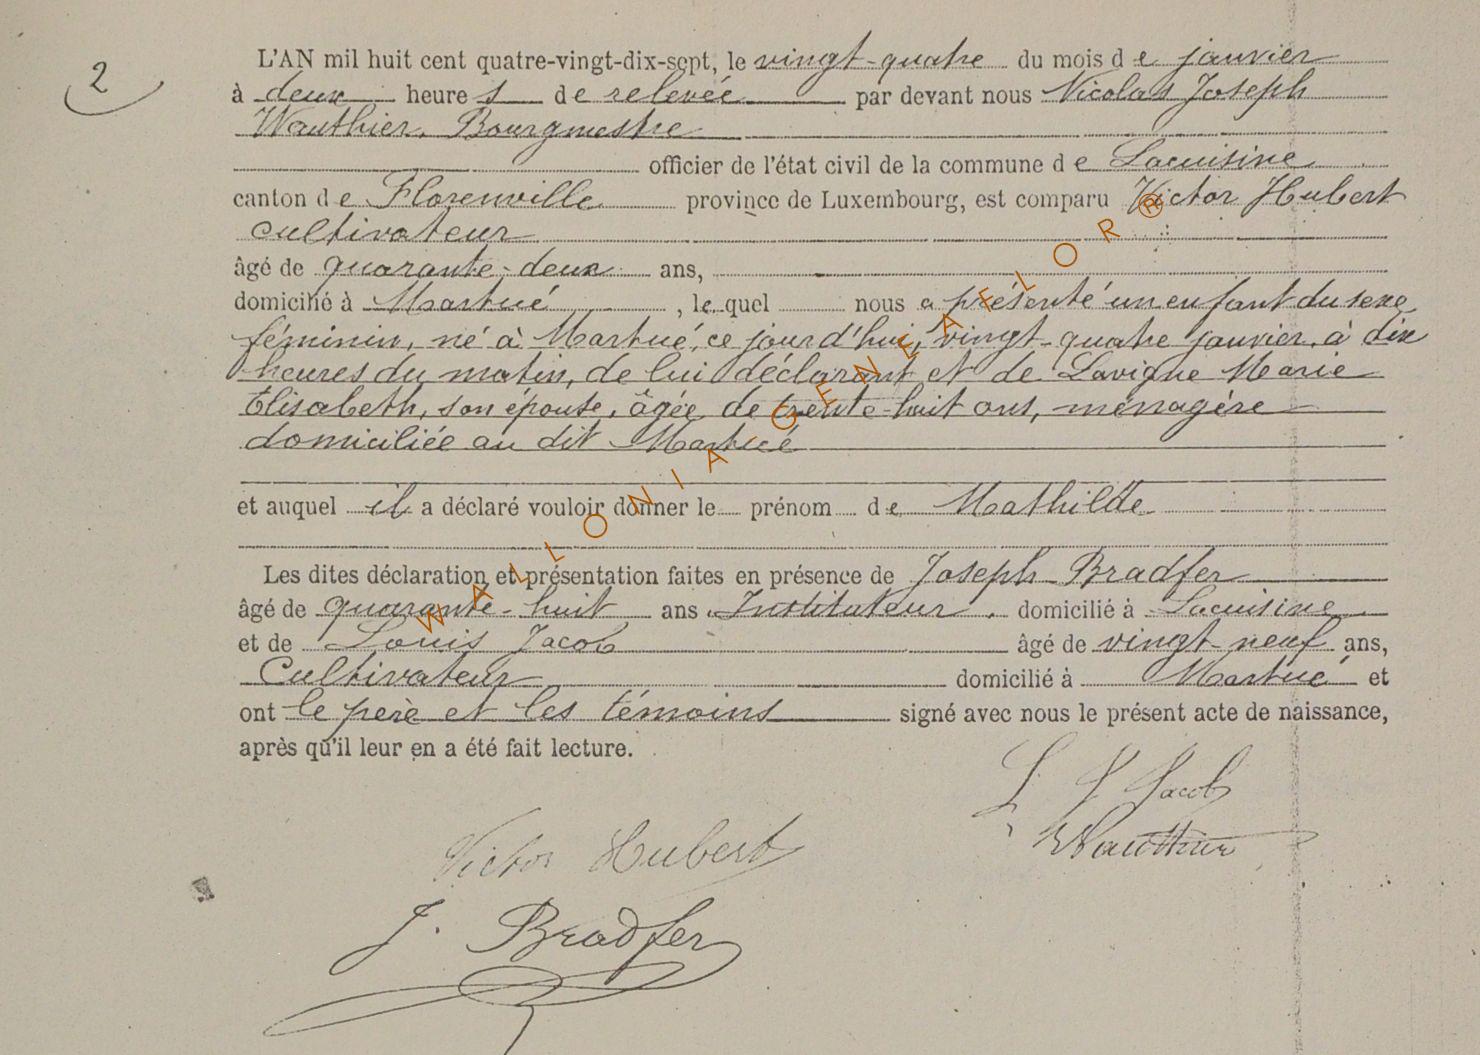 2
L'AN mil huit cent quatre-vingt-dix-sept, le vingt-quatre du mois de janvier
à deux heures de relevée par devant nous Nicolas Joseph
Wauthier, Bourgmestre
officier de l'état civil de la commune de Lacuisine
canton de Florenville province de Luxembourg, est comparu Victor Hubert
cultivateur
âgé de quarante-deux ans,
domicilié à Martué, lequel nous a présenté un enfant du sexe
féminin, né à Martué, ce jourd'hui, vingt-quatre janvier, à dix
heures du matin, de lui déclarant et de Lavigne Marie
Elisabeth, son épouse, âgée de trente-huit ans, ménagère
domiciliée au dit Martué
et auquel il a déclaré vouloir donner le prénom de Mathilde
Les dites déclaration et présentation faites en présence de Joseph Bradfer
âgé de quarante-huit ans Instituteur, domicilié à Lacuisine
et de Louis Jacob âgé de vingt-neuf ans,
Cultivateur domicilié à Martué et
ont le père et les témoins signé avec nous le présent acte de naissance,
après qu'il leur en a été fait lecture.
L. J. Jacob
Victor Hubert
Wauthier
J. Bradfer
WALLONIA GENEAFLOR ®